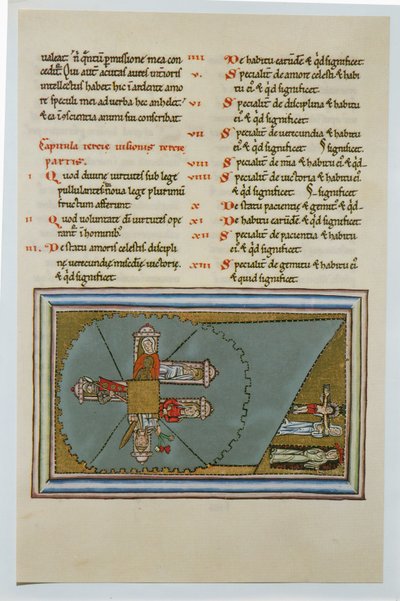 ualeat. ñ q̃tũ p̃missione mea con
ceditur. Qui autẽ acutas aures inẽrioris
intellectus habet. hic ĩ ardente amo
re speculi mei ad uerba hec anhelet.
& ea ĩ sciẽntia animi sui conscribat.
Capitula tercie uisionis tercie
partis.
i Quod diuine uirtutes sub lege
pullulantes in noua lege plurimũ
fructum afferunt.
ii Quod uoluntate dĩ uirtutes ope
rantr̃ ĩ hominibꝰ.
iii. De statu amoris celestis discipli
nę uerecundię misc̃dię uictorię.
& qd̃ significet.
iiii De habitu earũdẽ & q̃d significet.
v. Specialit̃ de amore celesti & habi
tu eiꝰ & qd̃ significet.
vi Specialit̃ de disciplina & habitu
eiꝰ & qd̃ significet.
vii Specialit̃ de uerecundia & habitu
eiꝰ & qd̃ significet. significet.
viii Specialit̃ de mĩa & habitu eiꝰ & qd̃
viiii Specialit̃ de uictoria & habitu eiꝰ.
& qd̃ significet. significet.
x De statu pacientię & gemitꝰ & qd̃
xi De habitu earũdẽ & qd̃ significet.
xii Specialit̃ de pacientia & habitu
eiꝰ & qd̃ significet.
xiii Specialit̃ de gemitu & habitu eiꝰ
& quid significet.